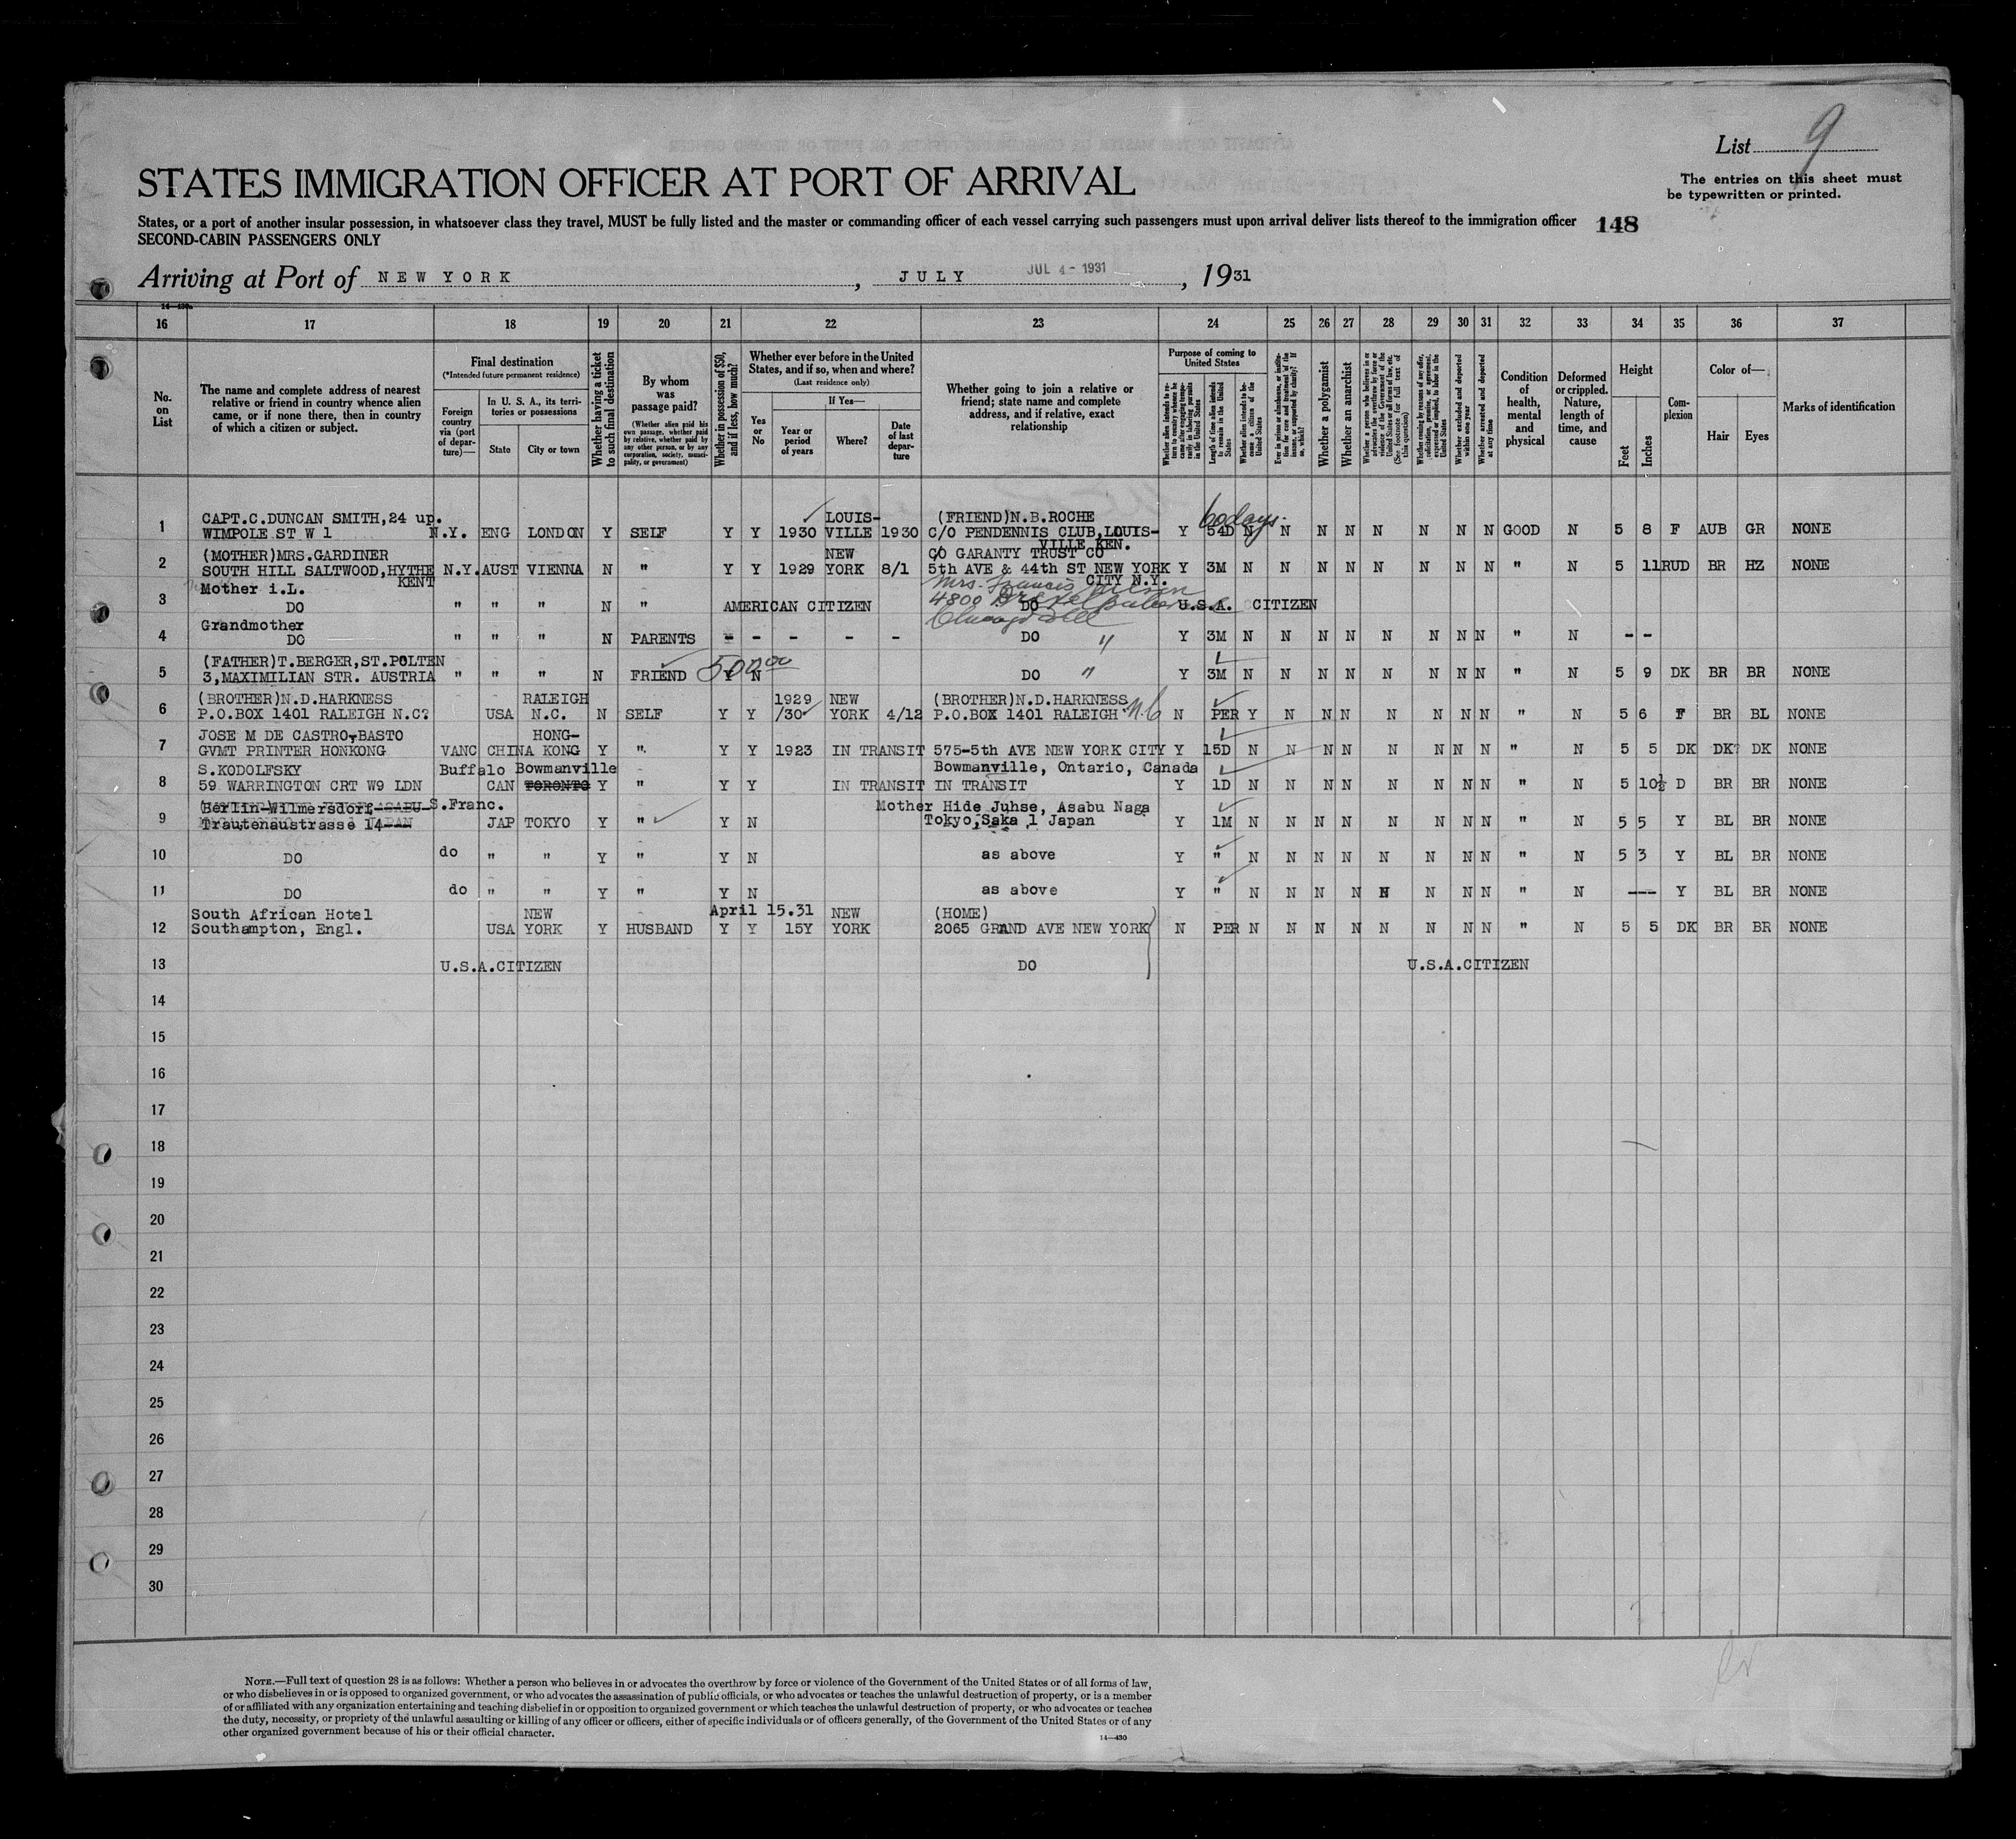 List 9
The entries on this sheet must
be typewritten or printed.
STATES IMMIGRATION OFFICER AT PORT OF ARRIVAL
States, or a port of another insular possession, in whatsoever class they travel, MUST be fully listed and the master or commanding officer of each vessel carrying such passengers must upon arrival deliver lists thereof to the immigration officer
148
SECOND-CABIN PASSENGERS ONLY
Arriving at Port of NEW YORK, JULY JUL 4 - 1931, 1931
16 17 18 19 20 21 22 23 24 25 26 27 28 29 30 31 32 33 34 35 36 37
No. on List
The name and complete address of nearest relative or friend in country whence alien came, or if none there, then in country of which a citizen or subject.
Final destination
(*Intended future permanent residence)
Foreign country via (port of departure)—
In U. S. A., its territories or possessions
State
City or town
Whether having a ticket to such final destination
By whom was passage paid?
(Whether alien paid his own passage, whether paid by relative, whether paid by any other person, or by any corporation, society, municipality, or government)
Whether in possession of $50, and if less, how much?
Whether ever before in the United States, and if so, when and where?
(Last residence only)
Yes or No
If Yes—
Year or period of years
Where?
Date of last departure
Whether going to join a relative or friend; state name and complete address, and if relative, exact relationship
Purpose of coming to United States
Length of time alien intends to remain in the United States
Whether alien intends to become a citizen of the United States
Whether a polygamist
Whether an anarchist
Whether excluded and deported within one year
Whether arrested and deported at any time
Condition of health, mental and physical
Deformed or crippled. Nature, length of time, and cause
Height
Feet
Inches
Complexion
Color of—
Hair
Eyes
Marks of identification
CAPT.C.DUNCAN SMITH,24 up. LOUIS- (FRIEND)N.B.ROCHE 60 days
1 WIMPOLE ST W 1 N.Y. ENG LONDON Y SELF Y Y 1930 VILLE 1930 C/O PENDENNIS CLUB,LOUIS- Y 54D N N N N N N N N GOOD N 5 8 F AUB GR NONE
VILLE KEN.
(MOTHER)MRS.GARDINER NEW C/O GARANTY TRUST CO
2 SOUTH HILL SALTWOOD,HYTHE N.Y. AUST VIENNA N " Y Y 1929 YORK 8/1 5th AVE & 44th ST NEW YORK Y 3M N N N N N N N N " N 5 11 RUD BR HZ NONE
KENT CITY N.Y.
Mother i.L. Mrs. Francis
3 DO " " " N " AMERICAN CITIZEN 4800 Drexel DO U.S.A. CITIZEN
Grandmother Chicago Ill
4 DO " " " N PARENTS - - - - - DO " Y 3M N N N N N N N N " N - -
(FATHER)T.BERGER,ST.POLTEN 500 00
5 3,MAXIMILIAN STR. AUSTRIA " " " N FRIEND Y N DO " Y 3M N N N N N N N N " N 5 9 DK BR BR NONE
(BROTHER)N.D.HARKNESS RALEIGH 1929 NEW (BROTHER)N.D.HARKNESS
6 P.O.BOX 1401 RALEIGH N.C? USA N.C. N SELF Y Y /30 YORK 4/12 P.O.BOX 1401 RALEIGH N.C N PER Y N N N N N N N " N 5 6 F BR BL NONE
JOSE M DE CASTRO-BASTO HONG-
7 GVMT PRINTER HONKONG VANC CHINA KONG Y " Y Y 1923 IN TRANSIT 575-5th AVE NEW YORK CITY Y 15D N N N N N N N N " N 5 5 DK DK? DK NONE
S.KODOLFSKY Buffalo Bowmanville Bowmanville, Ontario, Canada
8 59 WARRINGTON CRT W9 LDN CAN TORONTO Y " Y Y IN TRANSIT IN TRANSIT Y 1D N N N N N N N N " N 5 10½ D BR BR NONE
Berlin-Wilmersdorf S.Franc. Mother Hide Juhse, Asabu Naga
9 Trautenaustrasse 14 JAP TOKYO Y " Y N Tokyo,Saka 1 Japan Y 1M N N N N N N N N " N 5 5 Y BL BR NONE
10 DO do " " Y " Y N as above Y " N N N N N N N N " N 5 3 Y BL BR NONE
11 DO do " " Y " Y N as above Y " N N N N N N N N " N --- Y BL BR NONE
South African Hotel NEW April 15.31 NEW (HOME)
12 Southampton, Engl. USA YORK Y HUSBAND Y Y 15Y YORK 2065 GRAND AVE NEW YORK N PER N N N N N N N N " N 5 5 DK BR BR NONE
13 U.S.A.CITIZEN DO U.S.A.CITIZEN
14
15
16
17
18
19
20
21
22
23
24
25
26
27
28
29
30
NOTE.—Full text of question 28 is as follows: Whether a person who believes in or advocates the overthrow by force or violence of the Government of the United States or of all forms of law,
or who disbelieves in or is opposed to organized government, or who advocates the assassination of public officials, or who advocates or teaches the unlawful destruction of property, or is a member
of or affiliated with any organization entertaining and teaching disbelief in or opposition to organized government or which teaches the unlawful destruction of property, or who advocates or teaches
the duty, necessity, or propriety of the unlawful assaulting or killing of any officer or officers, either of specific individuals or of officers generally, of the Government of the United States or of any
other organized government because of his or their official character.
14—430